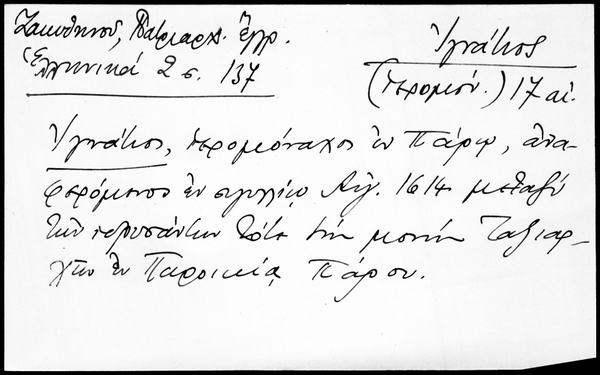 Ζακυθηνοῦ, Πατριαρχ. ἔγγρ.
Ἑλληνικά 2 σ. 137
Ἰγνάτιος
(ἱερομόν.) 17 αἰ.
Ἰγνάτιος, ἱερομόναχος ἐν Πάρῳ, ἀνα-
φερόμενος ἐν σιγιλλίῳ Αὐγ. 1614 μεταξὺ
τῶν τότε τὴν μονὴν Ταξιαρ-
χῶν ἐν Παροικίᾳ Πάρου.